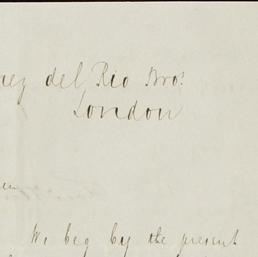 ney del Rio Bros.
London
en
We beg by the present